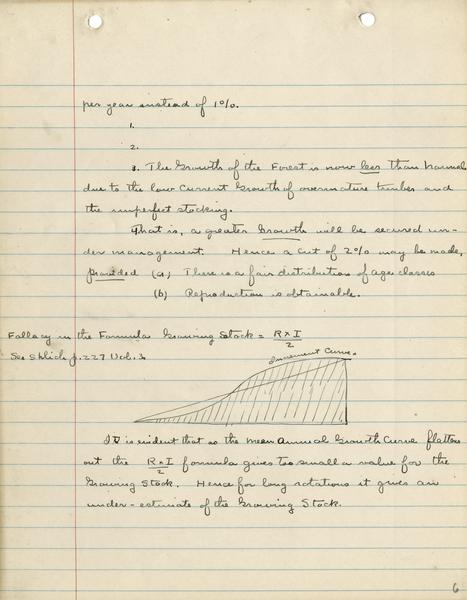 per year instead of 1%.
1.
2.
3. The Growth of the Forest is now less than normal
due to the low current Growth of overmature timber and
the imperfect stocking.
That is, a greater Growth will be secured un-
der management. Hence a cut of 2% may be made,
provided (a) There is a fair distribution of age classes
(b) Reproduction is obtainable.
Fallacy in the Formula Growing Stock = R x I / 2
See Schlich p. 227 Vol. 3.
Increment Curve.
It is evident that as the mean annual Growth Curve flattens
out the R x I / 2 formula gives too small a value for the
Growing Stock. Hence for long rotations it gives an
under-estimate of the Growing Stock.
6